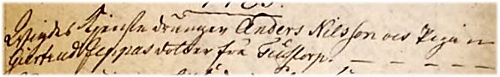 Wigdes Tjenste drängen Anders Nilsson och Pigan
Giertrud Jeppas dotter frå Tullstorp.